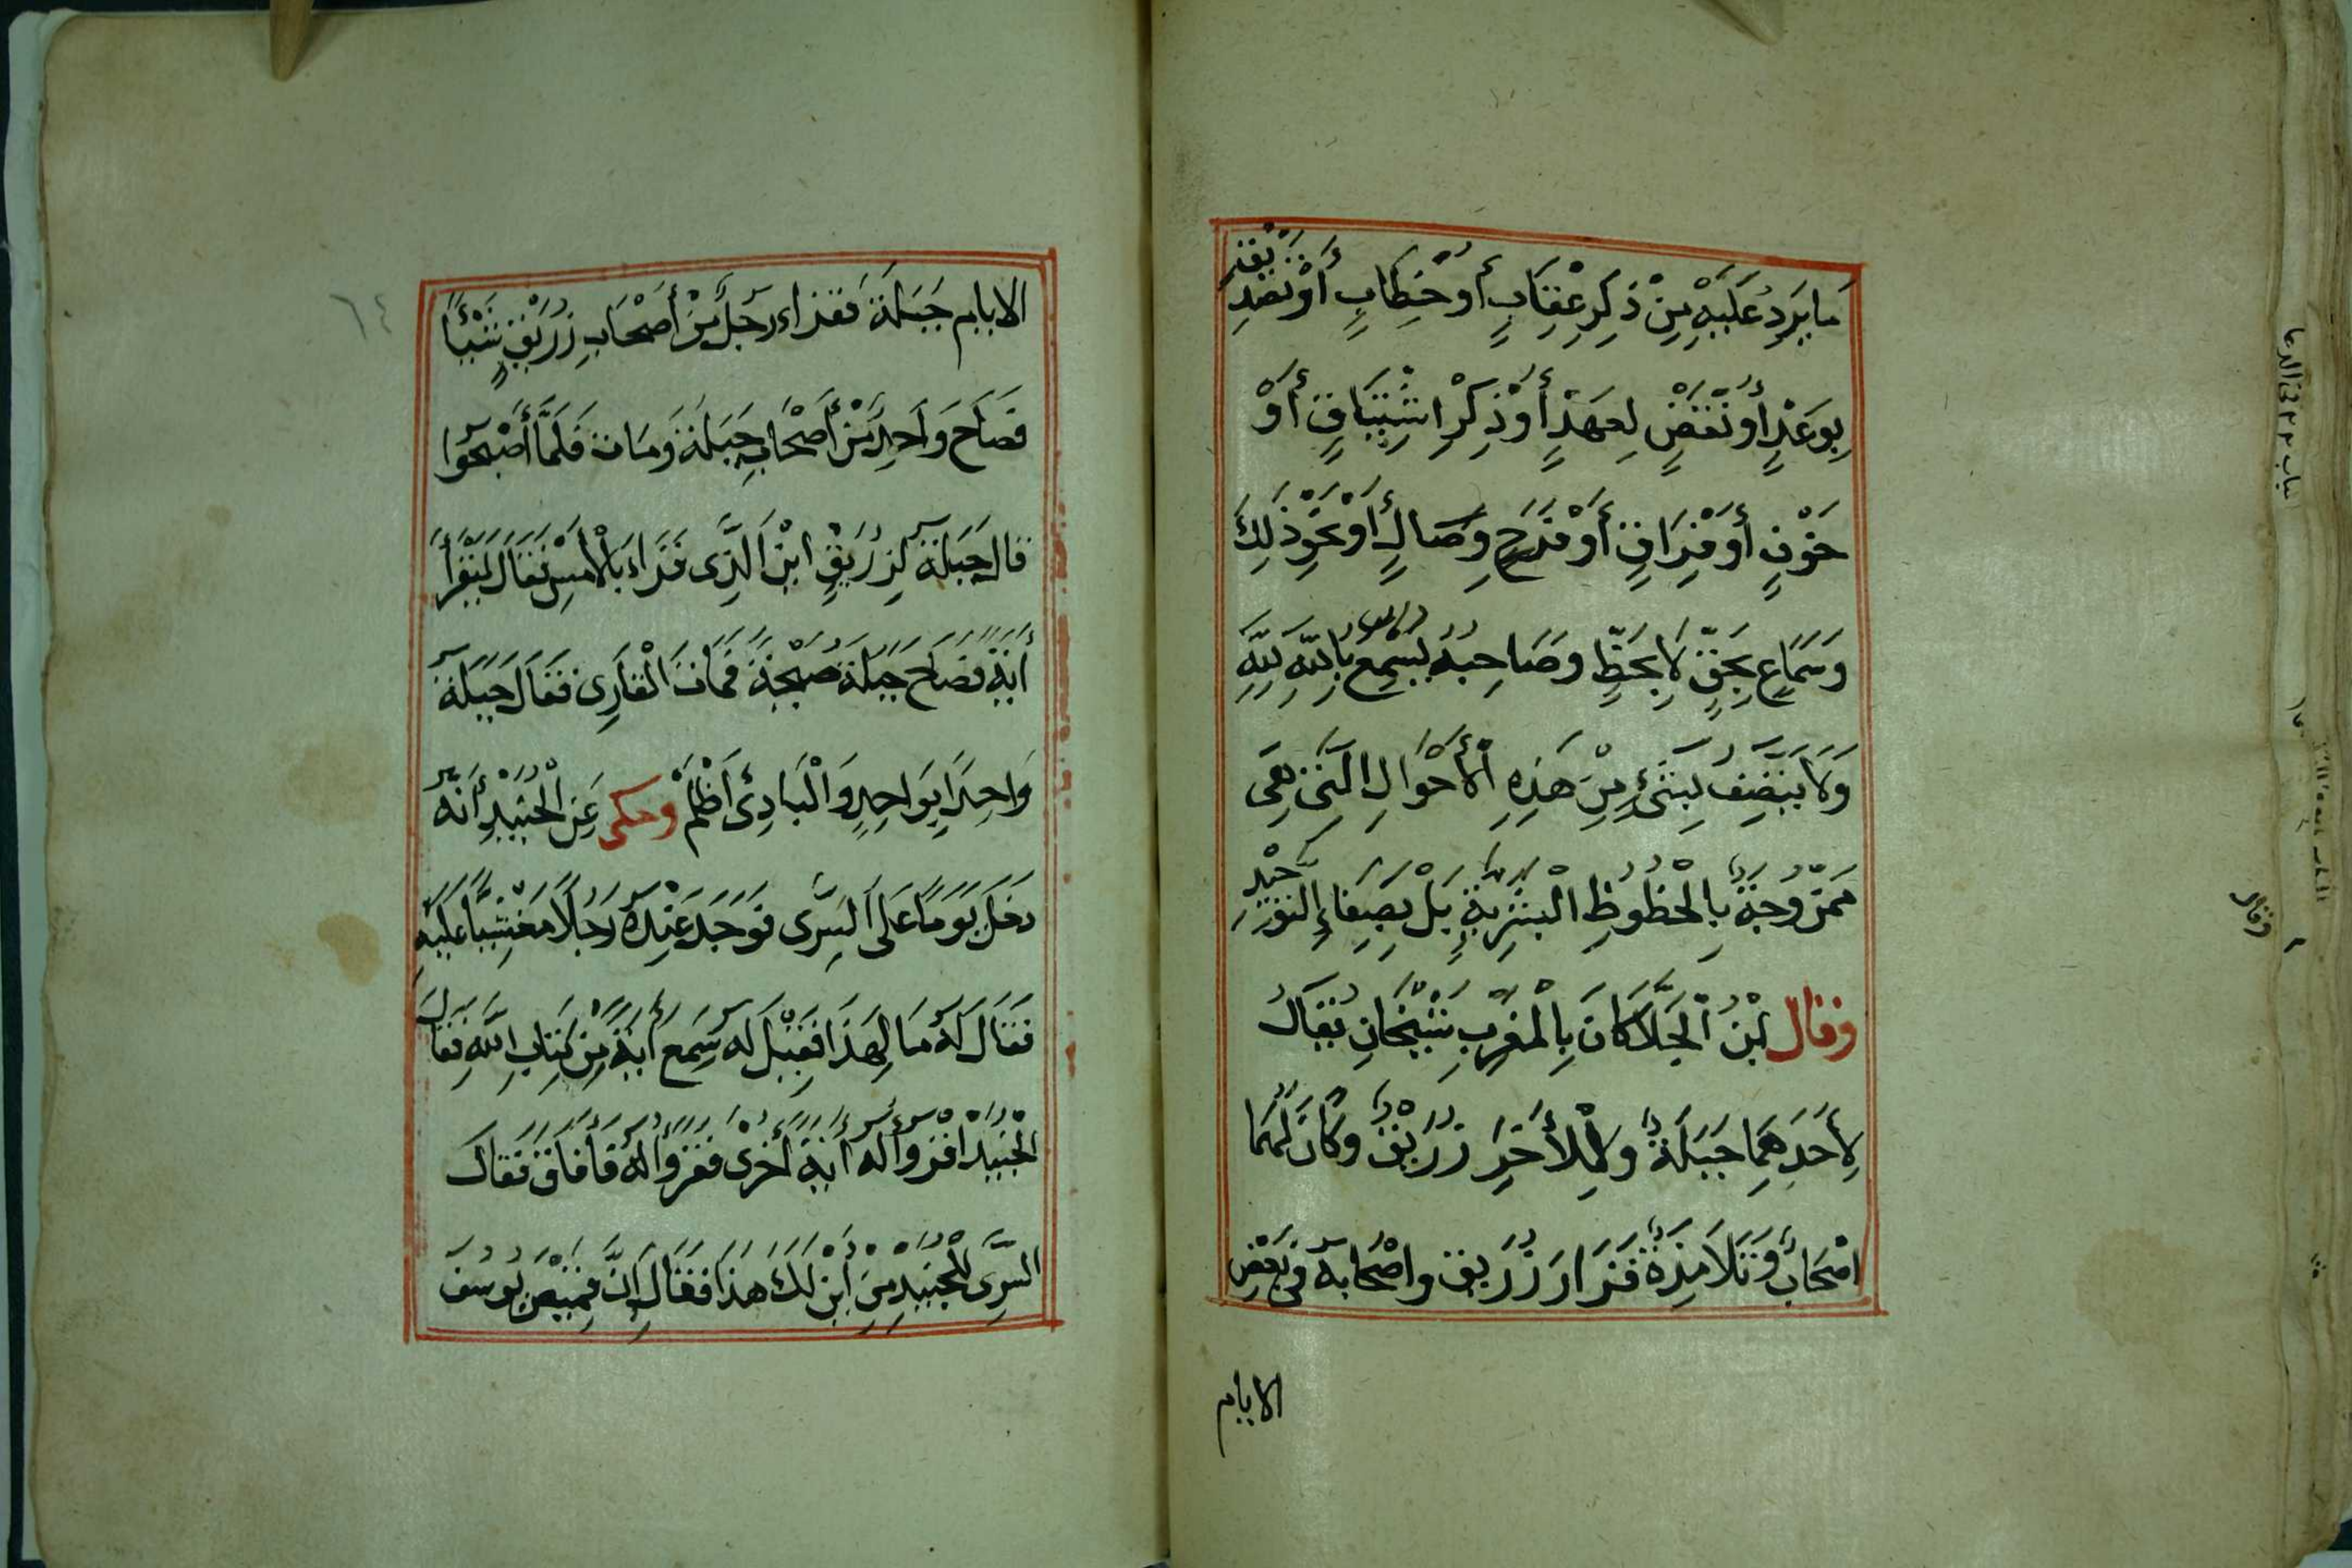 مَا يَرِدُ عَلَيْهِ مِنْ ذِكْرِ عِقَابٍ أَوْ خِطَابٍ أَوْ تَصْدِيقٍ
بِوَعْدٍ أَوْ نَقْضٍ لِعَهْدٍ أَوْ ذِكْرِ اشْتِيَاقٍ أَوْ
خَوْفٍ أَوْ فِرَاقٍ أَوْ فَرَحِ وِصَالٍ أَوْ نَحْوِ ذَلِكَ
وَسَمَاعٍ بِحَقٍّ لَا بِحَظٍّ وصَاحِبُهُ يَسْمَعُ بِاللَّهِ لِلَّهِ
وَلَا يَتَّصِفُ بِشَىْءٍ مِنْ هَذِهِ الْأَحْوَالِ الَّتِى هِىَ
مَمْزُوجَةٌ بِالْحُظُوظِ الْبَشَرِيَّةِ بَلْ بِصَفَاءِ التَّوْحِيْدِ
وقال ابْنُ الْجَلَّا كَانَ بِالْمَغْرِبِ شَيْخَانِ يُقَالُ
لِأَحَدِهِمَا جَبَلَةُ وَلِلْأَخَرِ زُرَيْقٌ وَكَانَ لَهُمَا
اصْحَابٌ وَتَلَامِذَةٌ فَزَارَ زُرَيق واصْحَابه فى بَعْضِ
الايام
الايام جَبَلَةَ فَقَرَاء رَجُلٌ مِنْ أَصْحَابِ زُرَيْقٍ شَيْئًا
فَصَاحَ وَاحِدٌ مِنْ أَصْحَابِ جَبَلَةَ وَمَات فَلَمَّا أَصْبَحُوا
قَالَ جَبَلَة لِزُرَيْقٍ اَيْنَ الَّذِى قَرَاءَ بِالْأَمْسِ فَقَالَ لْيَقْرَأْ
أَيَةً فَصَاحَ جَبَلَةُ صَيْحَةً فَمَاتَ الْقَارِى فَقَالَ جَبَلَة
وَاحِدًا بِوَاحِدٍ وَالْبَادِئُ اَظْلَمُ وحكى عَنِ الْجُنَيْدِ أَنَّه
دَخَلَ يَوْمًا عَلَى السَّرِى فَوَجَدَ عِنْدَهُ رَجُلًا مَغْشِيًّا عَلَيْهِ
فَقَالَ لَهُ مَا لِهَذَا فَقِيْلَ لَه سَمِعَ أَيَةً مِنْ كِتَابِ اللَّهِ فَقَالَ
الْجُنَيْدُ اقْرَؤُا لَه أَيَةً أُخْرَى فَقَرَؤُا لَهُ فَأَفَاقَ فَقَالَ
السَّرِى لِلْجُنَيْدِ مِنْ أَيْنَ لَكَ هَذَا فَقَالَ إِنَّ قَمِيْصَ يُوسُفَ
٦٤
وقال